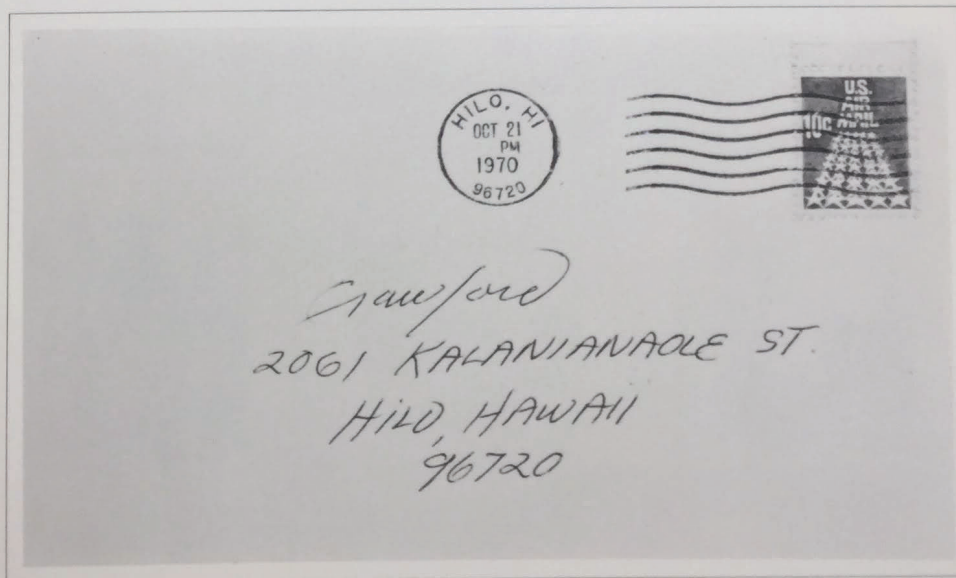 HILO, HI
OCT 21
PM
1970
96720
U.S.
AIR
MAIL
10c
Crawford
2061 KALANIANAOLE ST.
HILO, HAWAII
96720